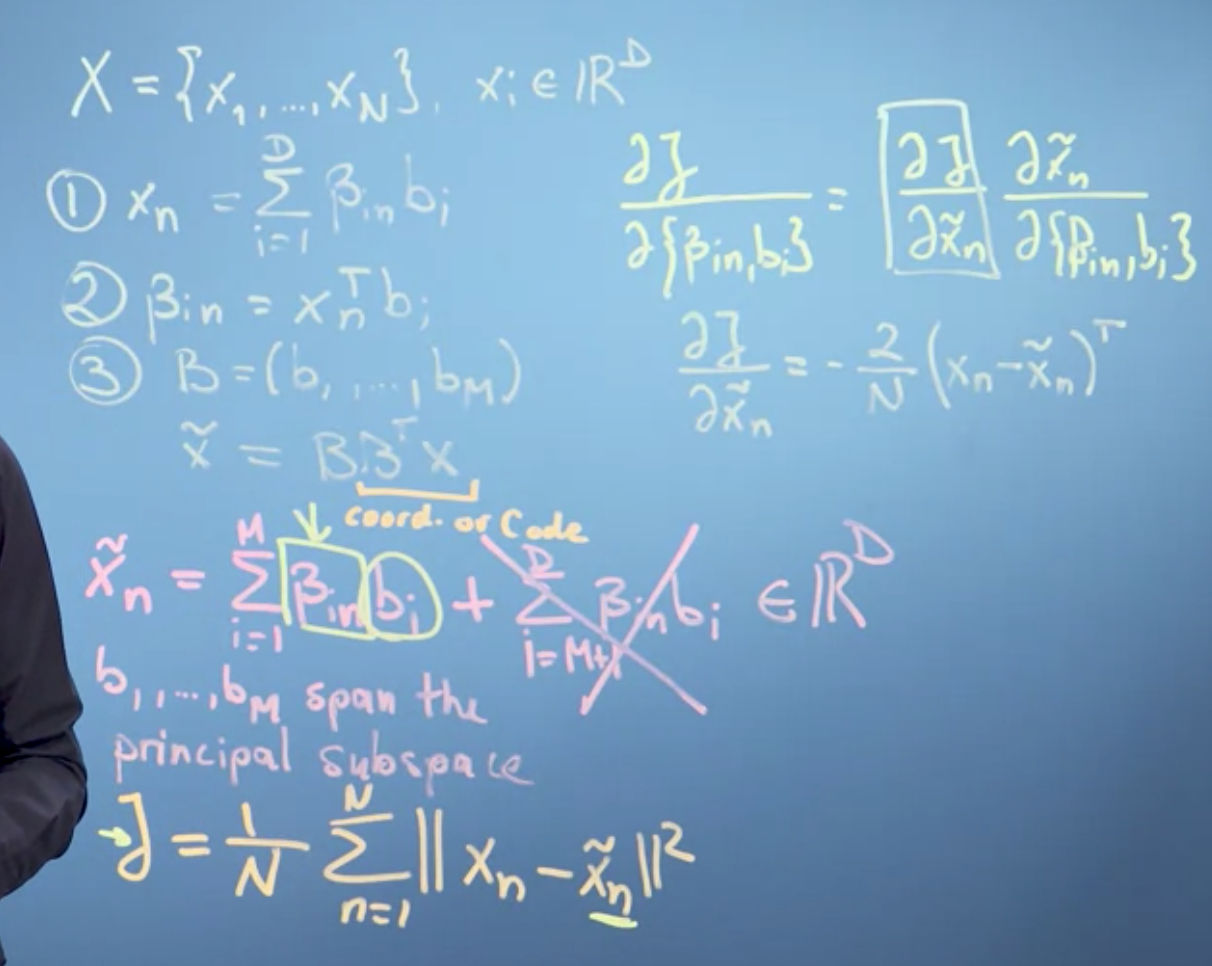 X = {x₁, ..., x_N}, xᵢ ∈ ℝᴰ
① xₙ = Σ_{i=1}^{D} βᵢₙ bᵢ
② βᵢₙ = xₙᵀ bᵢ
③ B = (b₁, ..., b_M)
x̃ = B Bᵀ x
coord. or Code
x̃ₙ = Σ_{i=1}^{M} βᵢₙ bᵢ + Σ_{i=M+1}^{D} βᵢₙ bᵢ ∈ ℝᴰ
b₁, ..., b_M span the
principal subspace
J = 1/N Σ_{n=1}^{N} || xₙ − x̃ₙ ||²
∂J / ∂{βᵢₙ, bᵢ} = ∂J / ∂x̃ₙ ∂x̃ₙ / ∂{βᵢₙ, bᵢ}
∂J / ∂x̃ₙ = − 2/N (xₙ − x̃ₙ)ᵀ